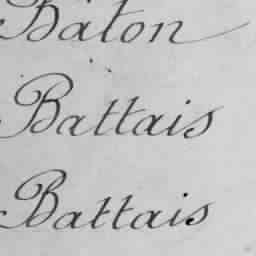 Bâton
Battais
Battais